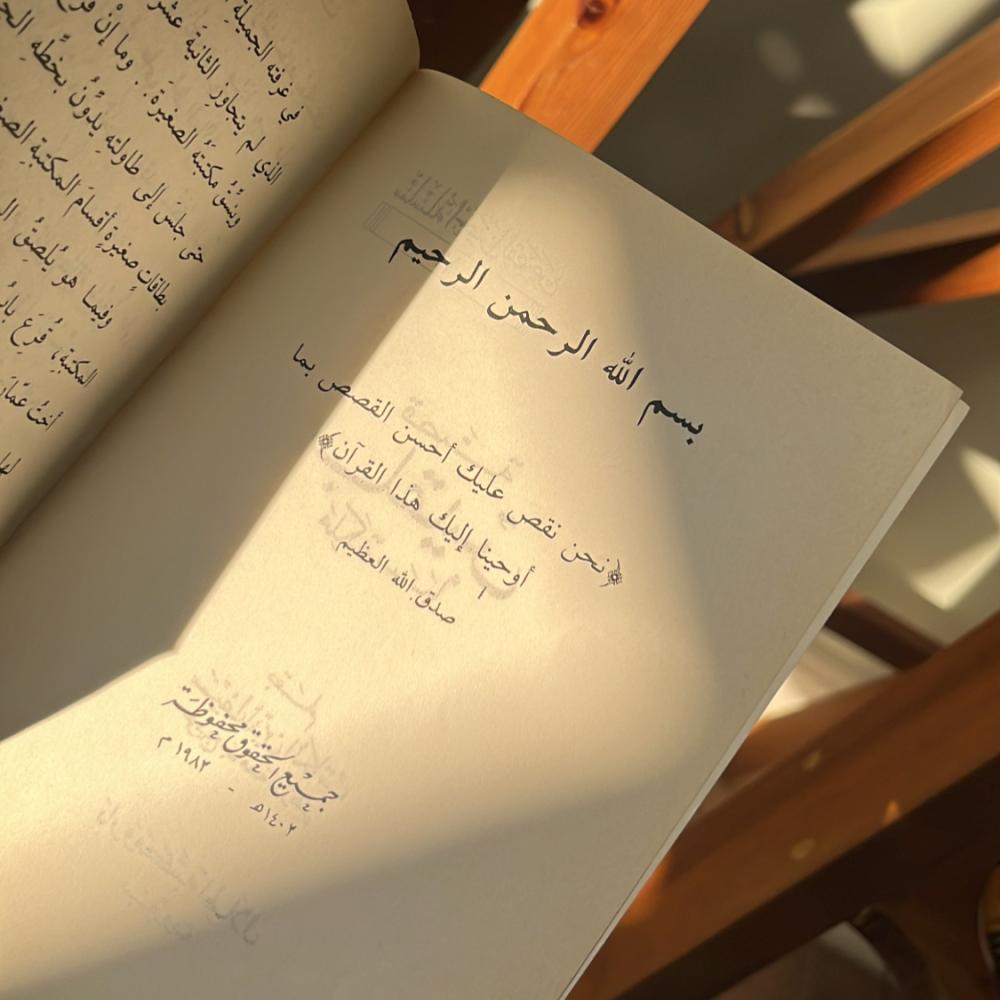 بسم الله الرحمن الرحيم
﴿نحن نقص عليك أحسن القصص بما
أوحينا إليك هذا القرآن﴾
صدق الله العظيم
جميع الحقوق محفوظة
١٤٠٢هـ - ١٩٨٢ م
في غرفته الجميلة
الذي لم يتجاوز الثانية عشر
ونسّق مكتبته الصغيرة.. وما إنْ فرغ
حتى جلسَ إلى طاولته يدوّنُ بخطّه
بطاقاتٍ صغيرةٍ أقسامَ المكتبةِ
وفيما هو يُلصِقُ
المكتبةِ، قُرِعَ
أختُ عمّار